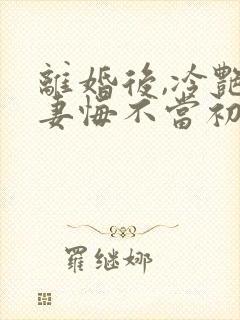 離婚後,冷艷
妻悔不當初
羅继娜